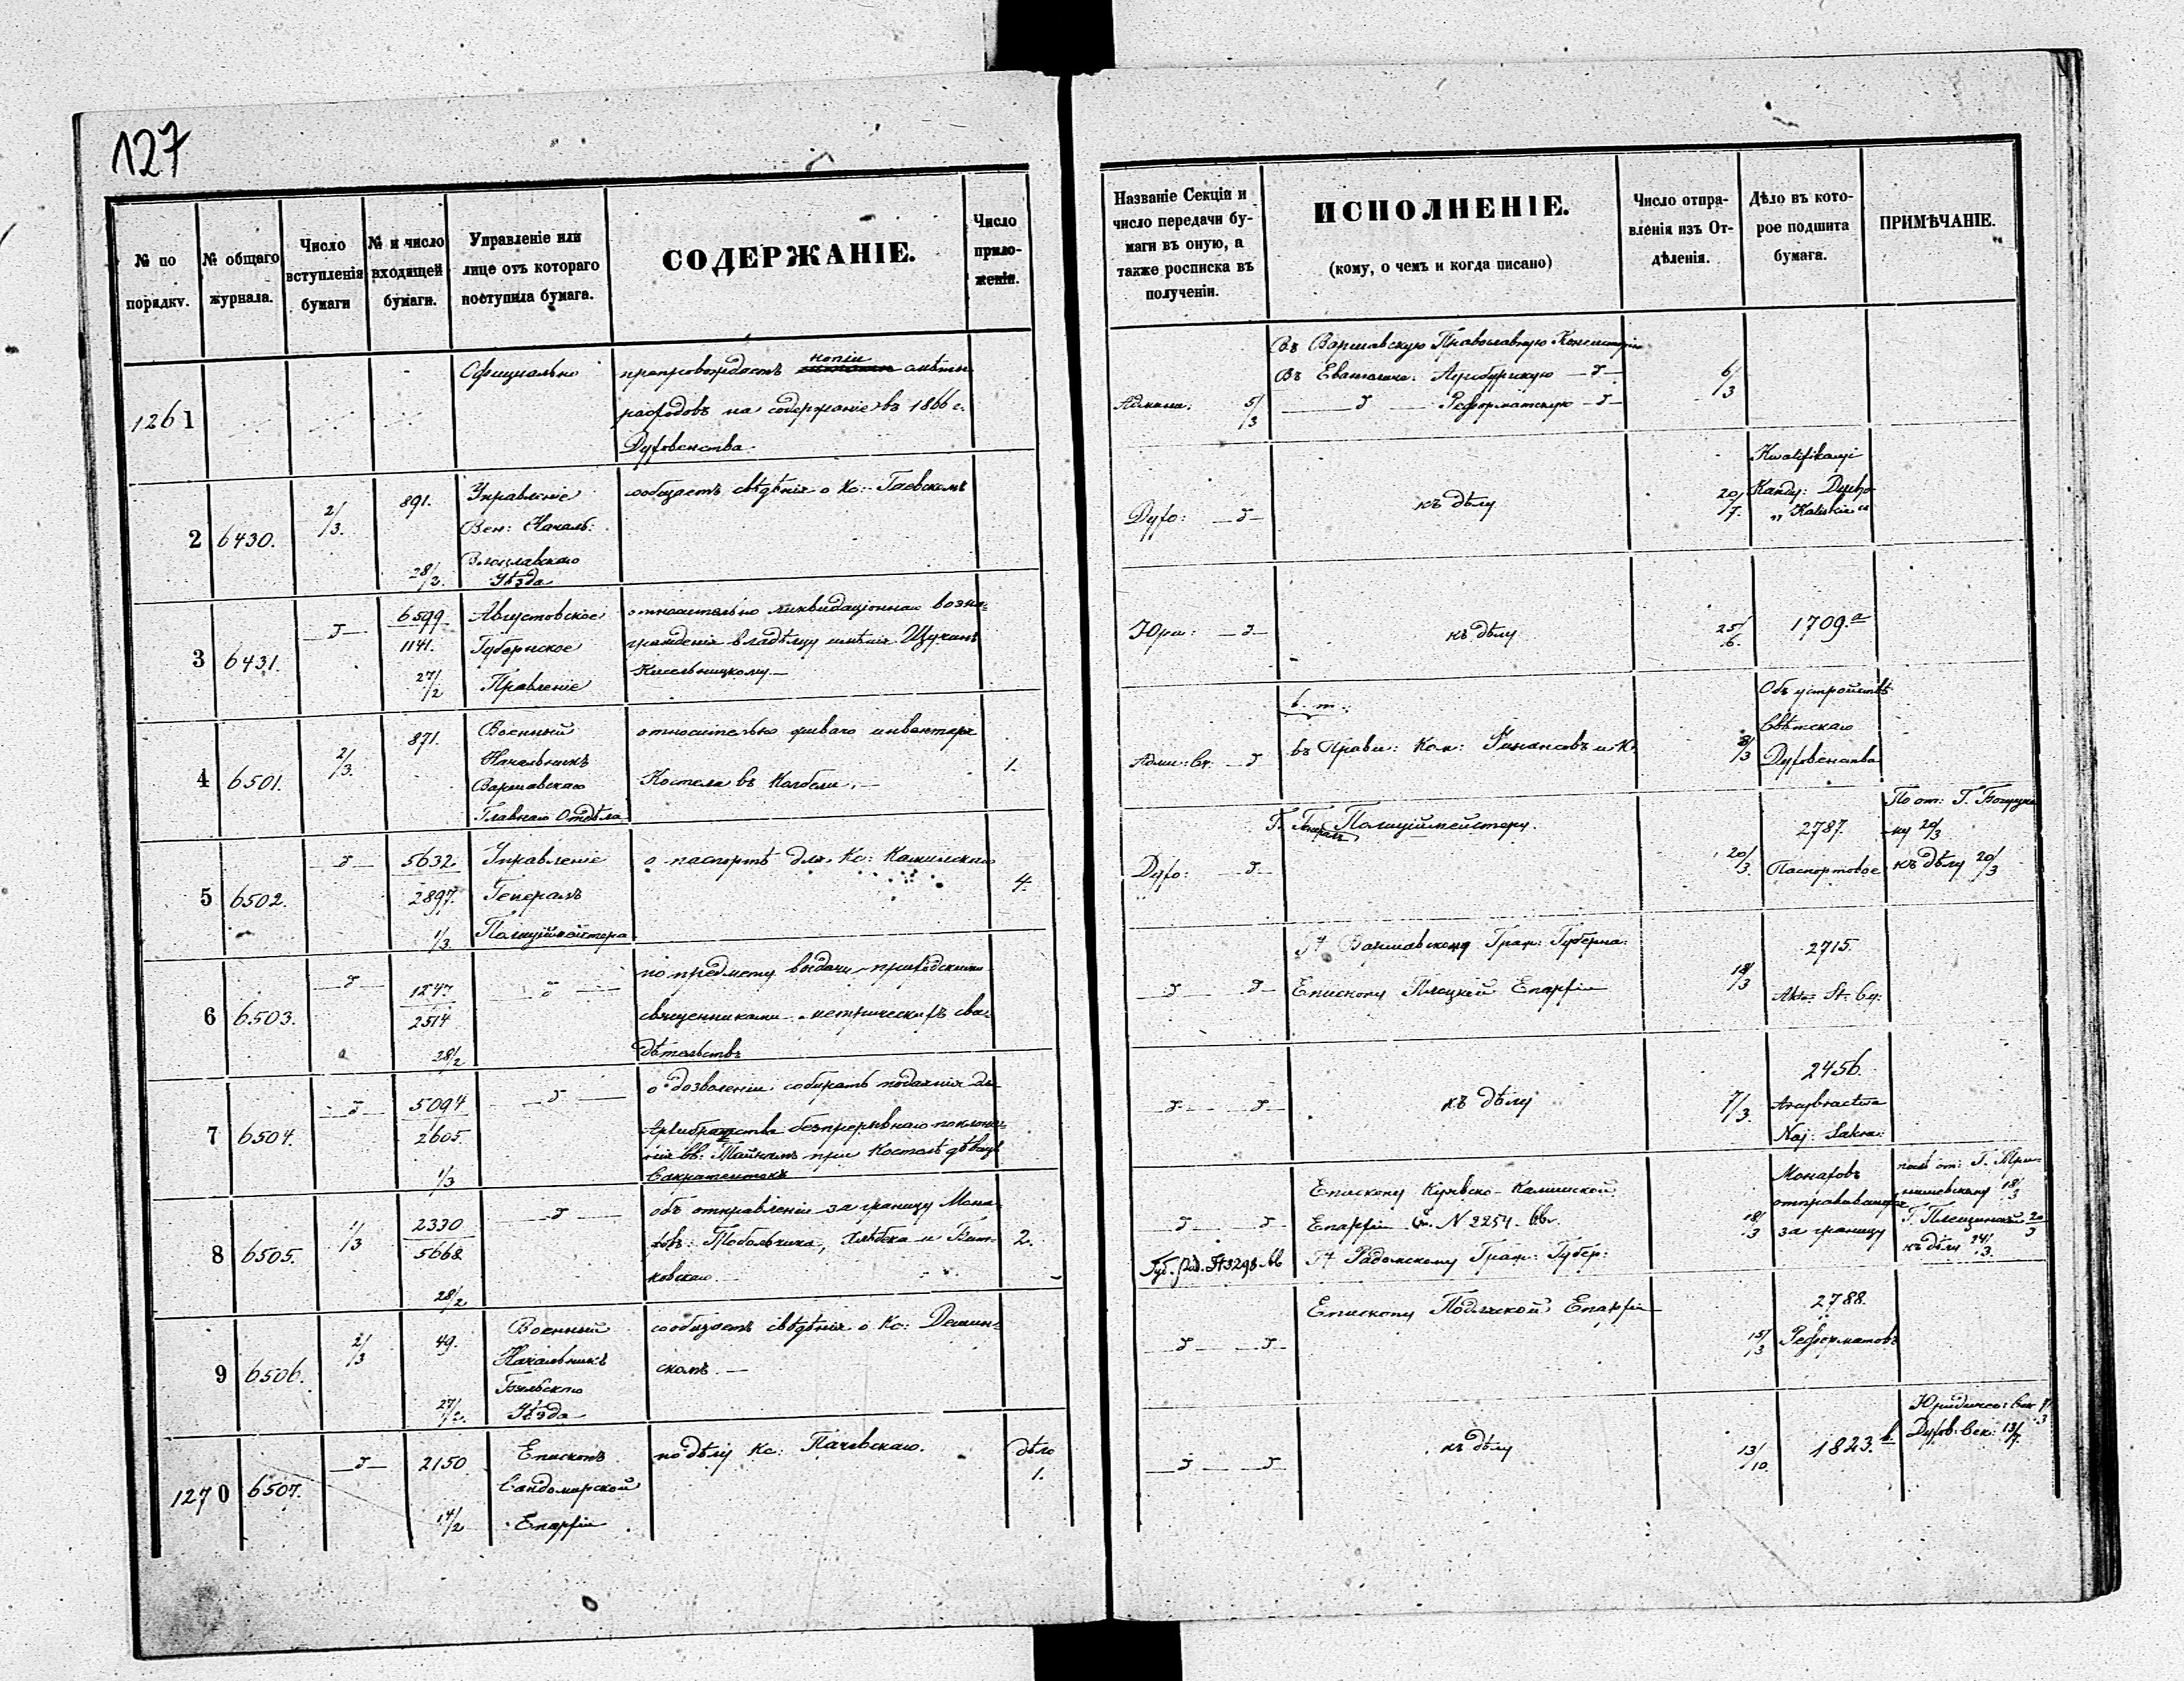 127
№ по порядку.
№ общаго журнала.
Число вступленія бумаги
№ и число входящей бумаги.
Управленіе или лице отъ котораго поступила бумага.
СОДЕРЖАНІЕ.
Число приложеній.
Названіе Секціи и число передачи бумаги въ оную, а также росписка въ полученіи.
ИСПОЛНЕНІЕ.
(кому, о чемъ и когда писано)
Число отправленія изъ Отдѣленія.
Дѣло въ которое подшита бумага.
ПРИМѢЧАНІЕ.
1261
Официально
препровождаетъ копіи смѣты
расходовъ на содержаніе въ 1866 г.
Духовенства
Админи. 5/3
Въ Варшавскую Православную Консисторію
Въ Евангелич: Аугсбургскую —д—
—д— Реформатскую —д—
6/3
2
6430.
2/3.
891.
28/2.
Управленіе
Воен: Началь:
Влоцлавскаго
Уѣзда
сообщаетъ свѣдѣнія о Кс: Гаевскомъ
Духо: —д—
къ дѣлу
20/7.
Kwalifikacyi
Kandy: Ducho
„Kaliskie"
3
6431.
—д—
6599
1141.
27/2
Августовское
Губернское
Правленіе
относительно ликвидаціоннаго возна-
гражденія владѣльцу имѣнія Щучинъ
Кисельницкому—
Юри: —д—
къ дѣлу
25/6.
1709.а
4
6501.
2/3.
871.
Военный
Начальникъ
Варшавскаго
Главнаго Отдѣла
относительно живаго инвентаря
Костела въ Колбели.—
1.
Адми: Св. —д
в. т.
въ Прави: Ком: Финансовъ и К.
8/3
Объ устройствѣ
Свѣтскаго
Духовенства
5
6502.
—д—
5632.
2897.
1/3.
Управленіе
Генералъ
Полиціймейстера
о паспортѣ для Кс: Каминскаго
4.
Духо: —д—
Г. Генералъ Полиціймейстеру.
20/3.
2787.
Паспортовое
По от: Г. 
ку 20/3
къ дѣлу 20/3
6
6503.
—д—
1247.
2514
28/2
—д—
по предмету выдачи приходскими
священниками метрическихъ сви-
дѣтельствъ
—д— д—
Г. Варшавскому Граж: Губерна:
Епископу Плоцкой Епархіи
18/3
2715.
Akta: St: Cy:
7
6504.
—д—
5094
2605.
1/3
—д—
о дозволеніи собирать подаянія для
Архибратства безпрерывнаго поклоне-
нія Св: Тайнамъ при Костелѣ дѣвицъ
Сакраментокъ
—д— д—
къ дѣлу
7/3.
2456.
Arcybractwa
Naj: Sakra:
8
6505.
1/3
2330
5668
28/2
—д—
объ отправленіи за границу Мона-
ховъ: Тобольчика, Хлѣбека и Вит-
ковскаго
2.
—д— д—
Губ. Рад. №3298.66
Епископу Куявско-Калишской
Епархіи N 2254
Г. Радомскому Граж: Губер:
18/3
Монаховъ
отправиваніе
за границу
18/3
20/3
къ дѣлу 24/3.
9
6506.
2/3
49.
27/2.
Военный
Начальникъ
Бѣльскаго
Уѣзда
сообщаетъ свѣдѣнія о Кс: Демин-
скомъ.—
—д— д—
Епископу Подляской Епархіи
15/3
2788.
Реформатовъ
1270
6507.
—д—
2150
14/2
Епископъ
Сандомирской
Епархіи
по дѣлу Кс: Пачевскаго.
дѣло
1.
—д— д—
къ дѣлу
13/10.
1823.в.
Юридичес: Сек
Духов: Сек: